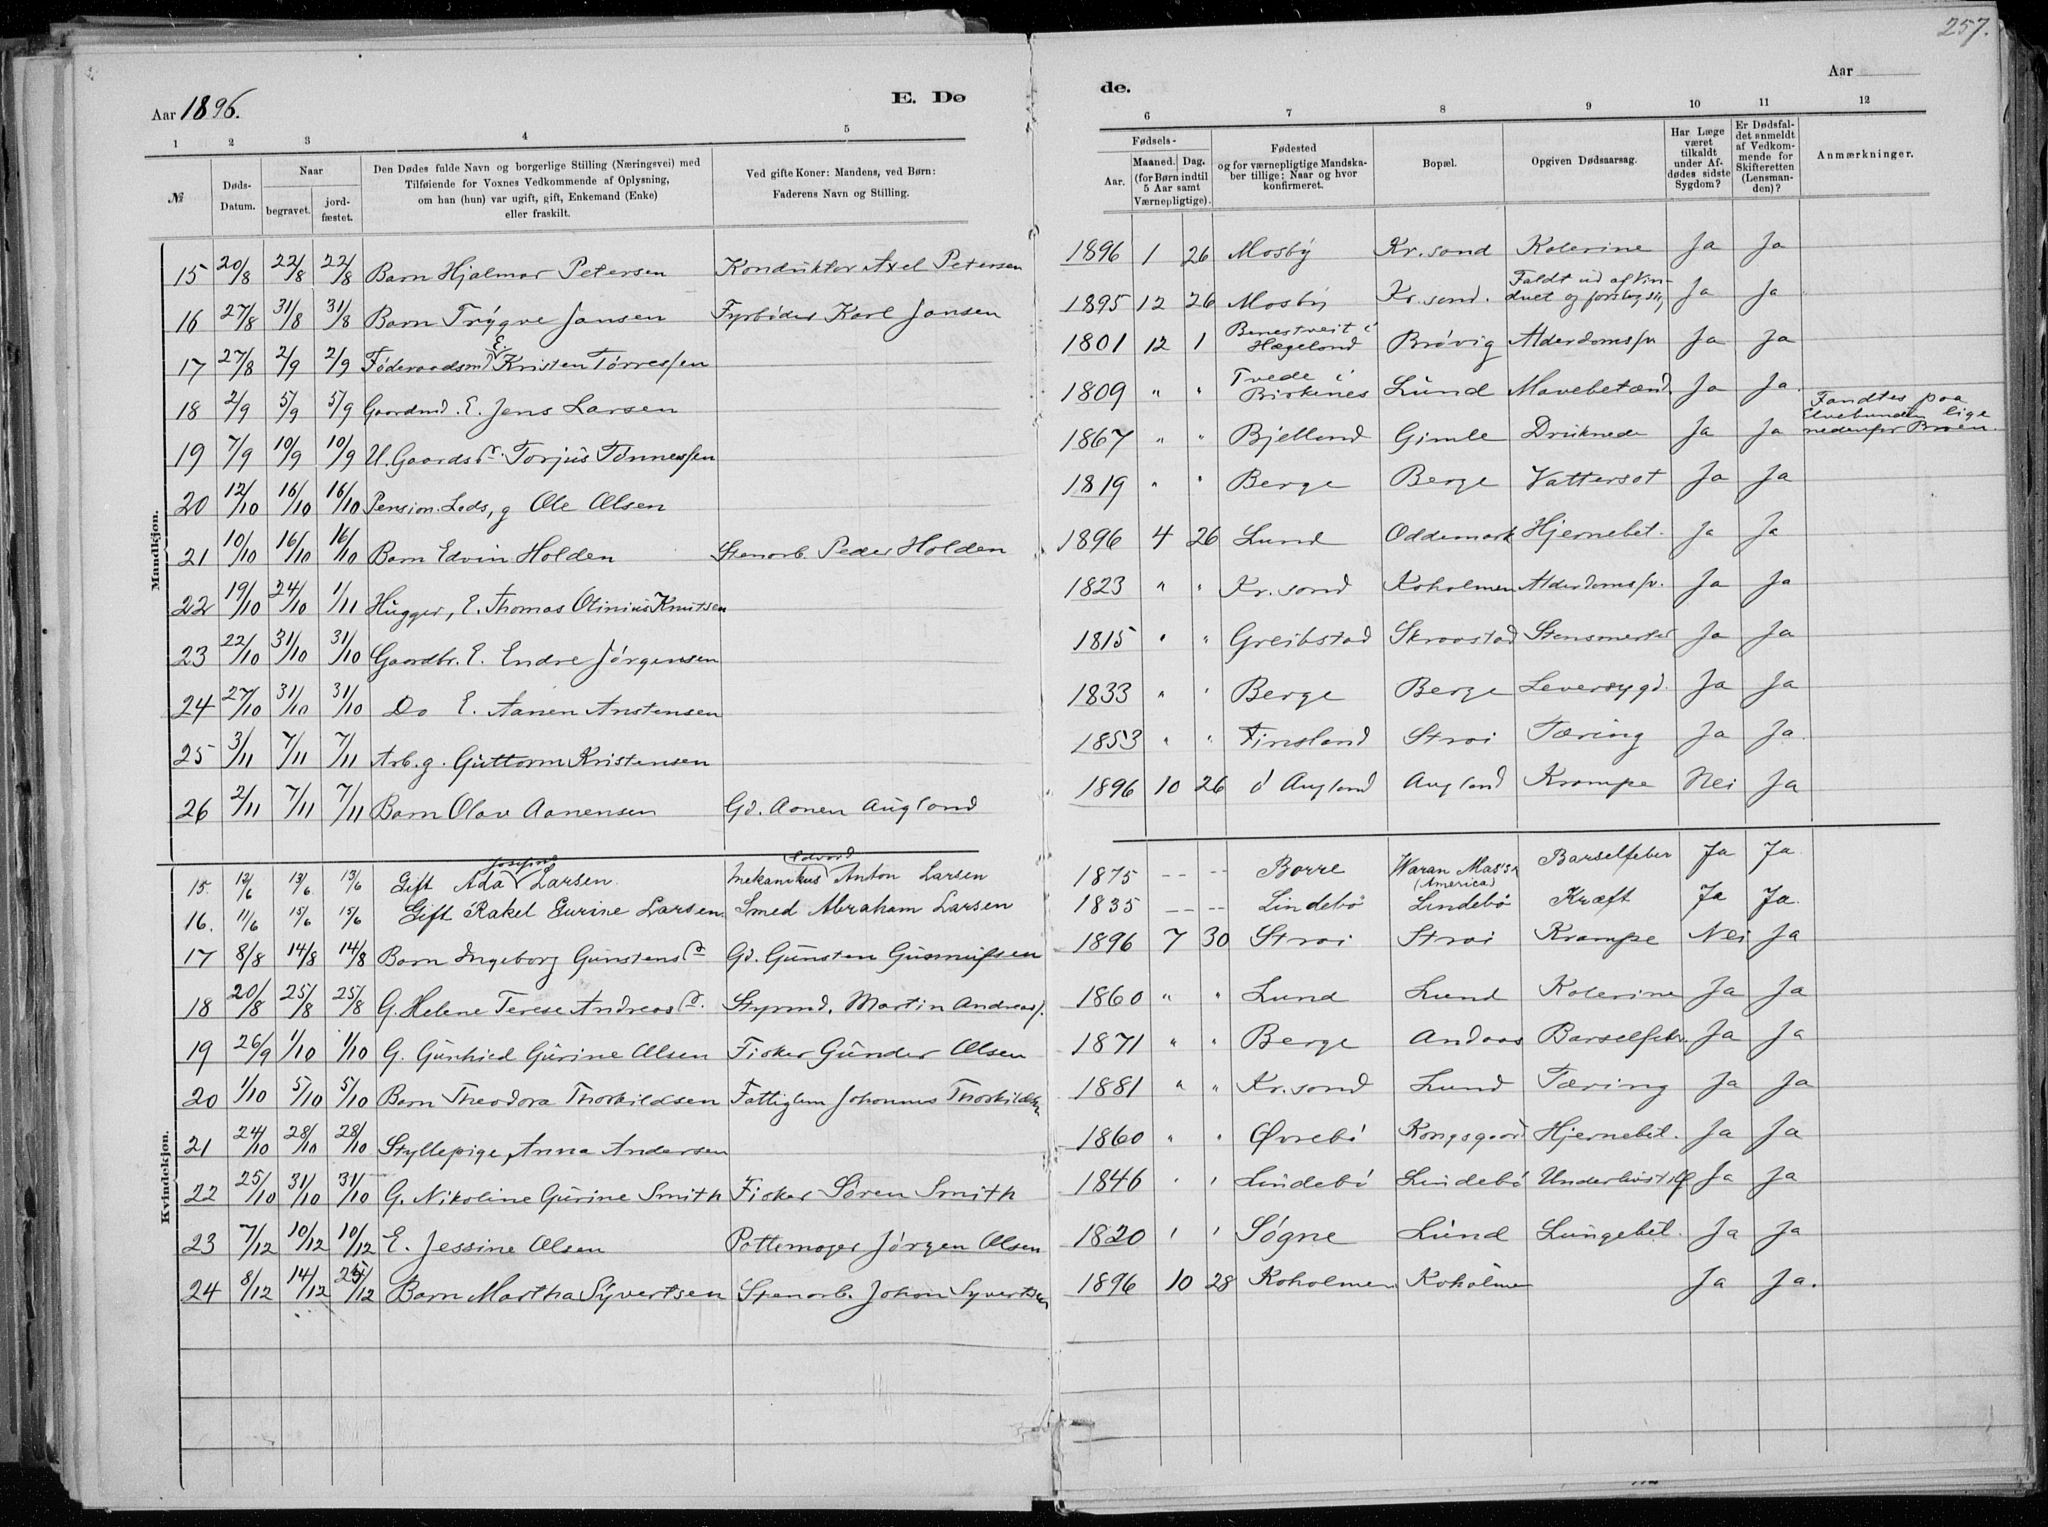 257.
Aar 1896.
E. Dø
de.
Aar
1 2 3 4 5 6 7 8 9 10 11 12
№
Døds-Datum.
Naar
begravet.
jord-fæstet.
Den Dødes fulde Navn og borgerlige Stilling (Næringsvei) med
Tilføiende for Voxnes Vedkommende af Oplysning,
om han (hun) var ugift, gift, Enkemand (Enke)
eller fraskilt.
Ved gifte Koner: Mandens, ved Børn:
Faderens Navn og Stilling.
Fødsels-
Aar.
Maaned. Dag.
(for Børn indtil
5 Aar samt
Værnepligtige).
Fødested
og for værnepligtige Mandska-
ber tillige: Naar og hvor
konfirmeret.
Bopæl.
Opgiven Dødsaarsag.
Har Læge
været
tilkaldt
under Af-
dødes sidste
Sygdom?
Er Dødsfal-
det anmeldt
af Vedkom-
mende for
Skifteretten
(Lensman-
den)?
Anmærkninger.
Mandkjøn.
15 20/8 22/8 22/8 Barn Hjalmar Petersen Konduktør Axel Petersen 1896 1 26 Mosby Kr.sand Kolerine Ja Ja
16 27/8 31/8 31/8 Barn Trygve Jansen Fyrbøder Karl Jansen 1895 12 26 Mosby Kr.sand. Faldt ud af Vin-
duet og Ja Ja
17 27/8 2/9 2/9 Føderaadsm E. Kristen Tørresen 1801 12 1 Benestveit i
Hægeland Brøvig Alderdomssv Ja Ja
18 2/9 5/9 5/9 Gaardmd. E. Jens Larsen 1809 " " Tvede i
Birkenes Lund Mavebetænd. Ja Ja.
19 7/9 10/9 10/9 U. Gaards Torjus Tønnessen 1867 " " Bjelland Gimle Druknede Ja Ja Fandtes paa
Elvebunden lige
nedenfor Broen.
20 12/10 16/10 16/10 Pension. Lods, g Ole Olsen 1819 " " Berge Berge Vattersot Ja Ja
21 10/10 16/10 16/10 Barn Edvin Holden Stenarb. Peder Holden 1896 4 26 Lund Oddemark Hjernebet. Ja Ja
22 19/10 24/10 1/11 Hugger, E. Thomas Olinius Knutsen 1823 " " Kr.sand Koholmen Alderdomssv. Ja Ja
23 22/10 31/10 31/10 Gaardbr. E. Endre Jørgensen 1815 " " Greibstad Skraastad Stensmerter Ja Ja
24 27/10 31/10 31/10 Do E. Aanen Anstensen 1833 " " Berge Berge Leversygd. Ja Ja
25 3/11 7/11 7/11 Arb. g. Guttorm Kristensen 1853 " " Finsland Strai Tæring Ja Ja.
26 2/11 7/11 7/11 Barn Olav Aanensen Gd. Aanen Augland 1896 10 26 Augland Augland Krampe Nei Ja
Kvindekjøn.
15. 12/6 13/6 13/6 Gift Ada Larsen. Mekanikus Edvard Anton Larsen 1875 Borre Waran Mass.
(America) Barselfeber Ja Ja.
16. 11/6 15/6 15/6 Gift Rakel Gurine Larsen Smed Abraham Larsen 1835 Lindebø Lindebø Kræft Ja Ja.
17 8/8 14/8 14/8 Barn Ingeborg Gunstens Gd. Gunsten 1896 7 30 Strai Strai Krampe Nei Ja
18 20/8 25/8 25/8 G. Helene Terese Andreas Styrmd. Martin Andreas 1860 " " Lund Lund Kolerine Ja Ja
19 26/9 1/10 1/10 G. Gunhild Gurine Olsen Fisker Gunder Olsen 1871 " " Berge Andaas Barselfeber Ja Ja
20 1/10 5/10 5/10 Barn Theodora Thorkildsen Fattiglem Johannes Thorkildsen 1881 " " Kr.sand Lund Tæring Ja Ja
21 24/10 28/10 28/10 Styllepige, Anna Andersen 1860 " " Øvrebø Kongsgaard Hjernebet. Ja Ja
22 25/10 31/10 31/10 G. Nikoline Gurine Smith Fisker Søren Smith 1846 " " Lindebø Lindebø Ja Ja
23 7/12 10/12 10/12 E. Jessine Olsen Pottemager Jørgen Olsen 1820 " " Søgne Lund Lungebet. Ja Ja
24 8/12 14/12 25/12 Barn Martha Syvertsen Stenarb. Johan Syvertsen 1896 10 28 Koholmen Koholmen Ja Ja.